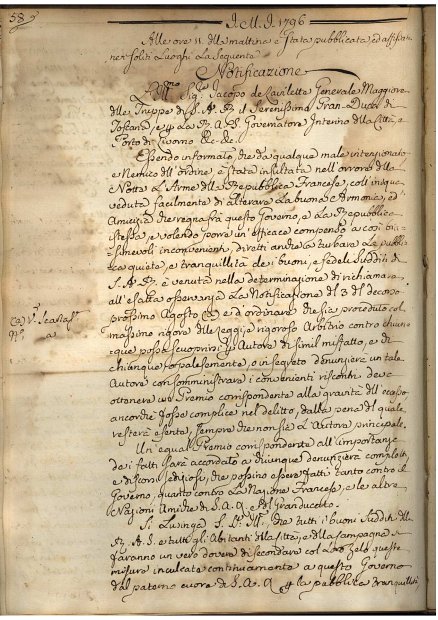 58
d. M. d. 1796
Alle ore 11. della mattina è stata pubblicata, ed affissa
nei soliti Luoghi la seguente
Notificazione
L'Ill.mo Sig.e Jacopo de Lavilette Generale Maggiore
delle Truppe di S. A. R. il Serenissimo Gran-Duca di
Toscana, e p. la R. A. S. Governatore Interino della Città, e
Porto di Livorno &c. &c.
Essendo informato, che da qualque male intenzionato
e Nemico dell'ordine, è stata insultata nell'orrore della
Notte L'Arme della Repubblica Francese, coll'iniqua
veduta facilmente di alterare La buona Armonia, ed
Amicizia che regna fra questo Governo, e La Repubblica
istessa, e volendo porre un efficace compenso a così bia-
simevoli inconvenienti, diretti anche a turbare La pubbli-
ca quiete, e tranquillità de i buoni, e fedeli Sudditi di
S. A. R. è venuta nella determinazione di richiamare
all'esatta osservanza La Notificazione del 3 del decorso
prossimo Agosto (a) e di ordinare che sia proceduto col
massimo rigore delle Leggi, e rigoroso Arbitrio contro chiun-
que possa scuoprirsi p. Autore di simil misfatto, e che
chiunque, o palesemente, o in segreto denunzierà un tale
Autore con somministrare i convenienti riscontri deve
ottenere un Premio corrispondente alla gravità dell'eccesso,
ancorchè fosse complice nel delitto, dalla pena del quale,
resterà esente, sempre che non sia L'Autore principale.
Un'egual Premio corrispondente all'importanza
de i fatti sarà accordato a chiunque denunzierà complotti,
e discorsi sediziosi, che possino essere fatti tanto contro il
Governo, quanto contro La Nazione Francese, e le altre
Nazioni Amiche di S. A. R. e del Granducato.
Si Lusinga S. S. Ill. che tutti i buoni Sudditi della
R. A. S. e tutti gli Abitanti della Città, e della Campagna si
faranno un vero dovere di secondare col Loro zelo queste
misure inculcate continuamente a questo Governo
dal paterno cuore di S. A. R. p. la pubblica tranquillità
(a)